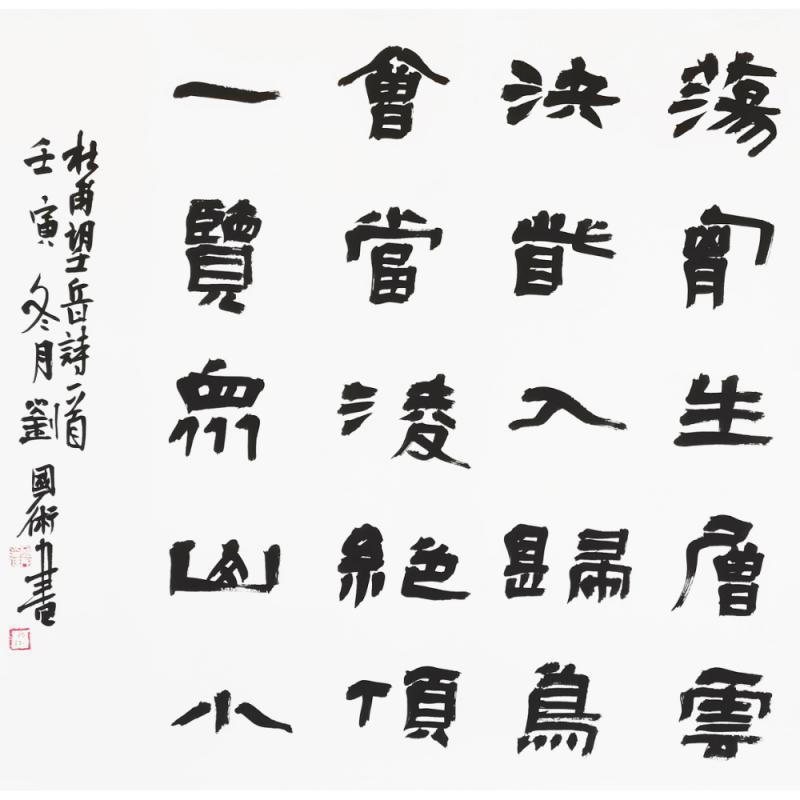 蕩胷生層雲
決眥入歸鳥
會當淩絶頂
一覽眾山小
杜甫望岳詩一首
壬寅冬月劉國術書